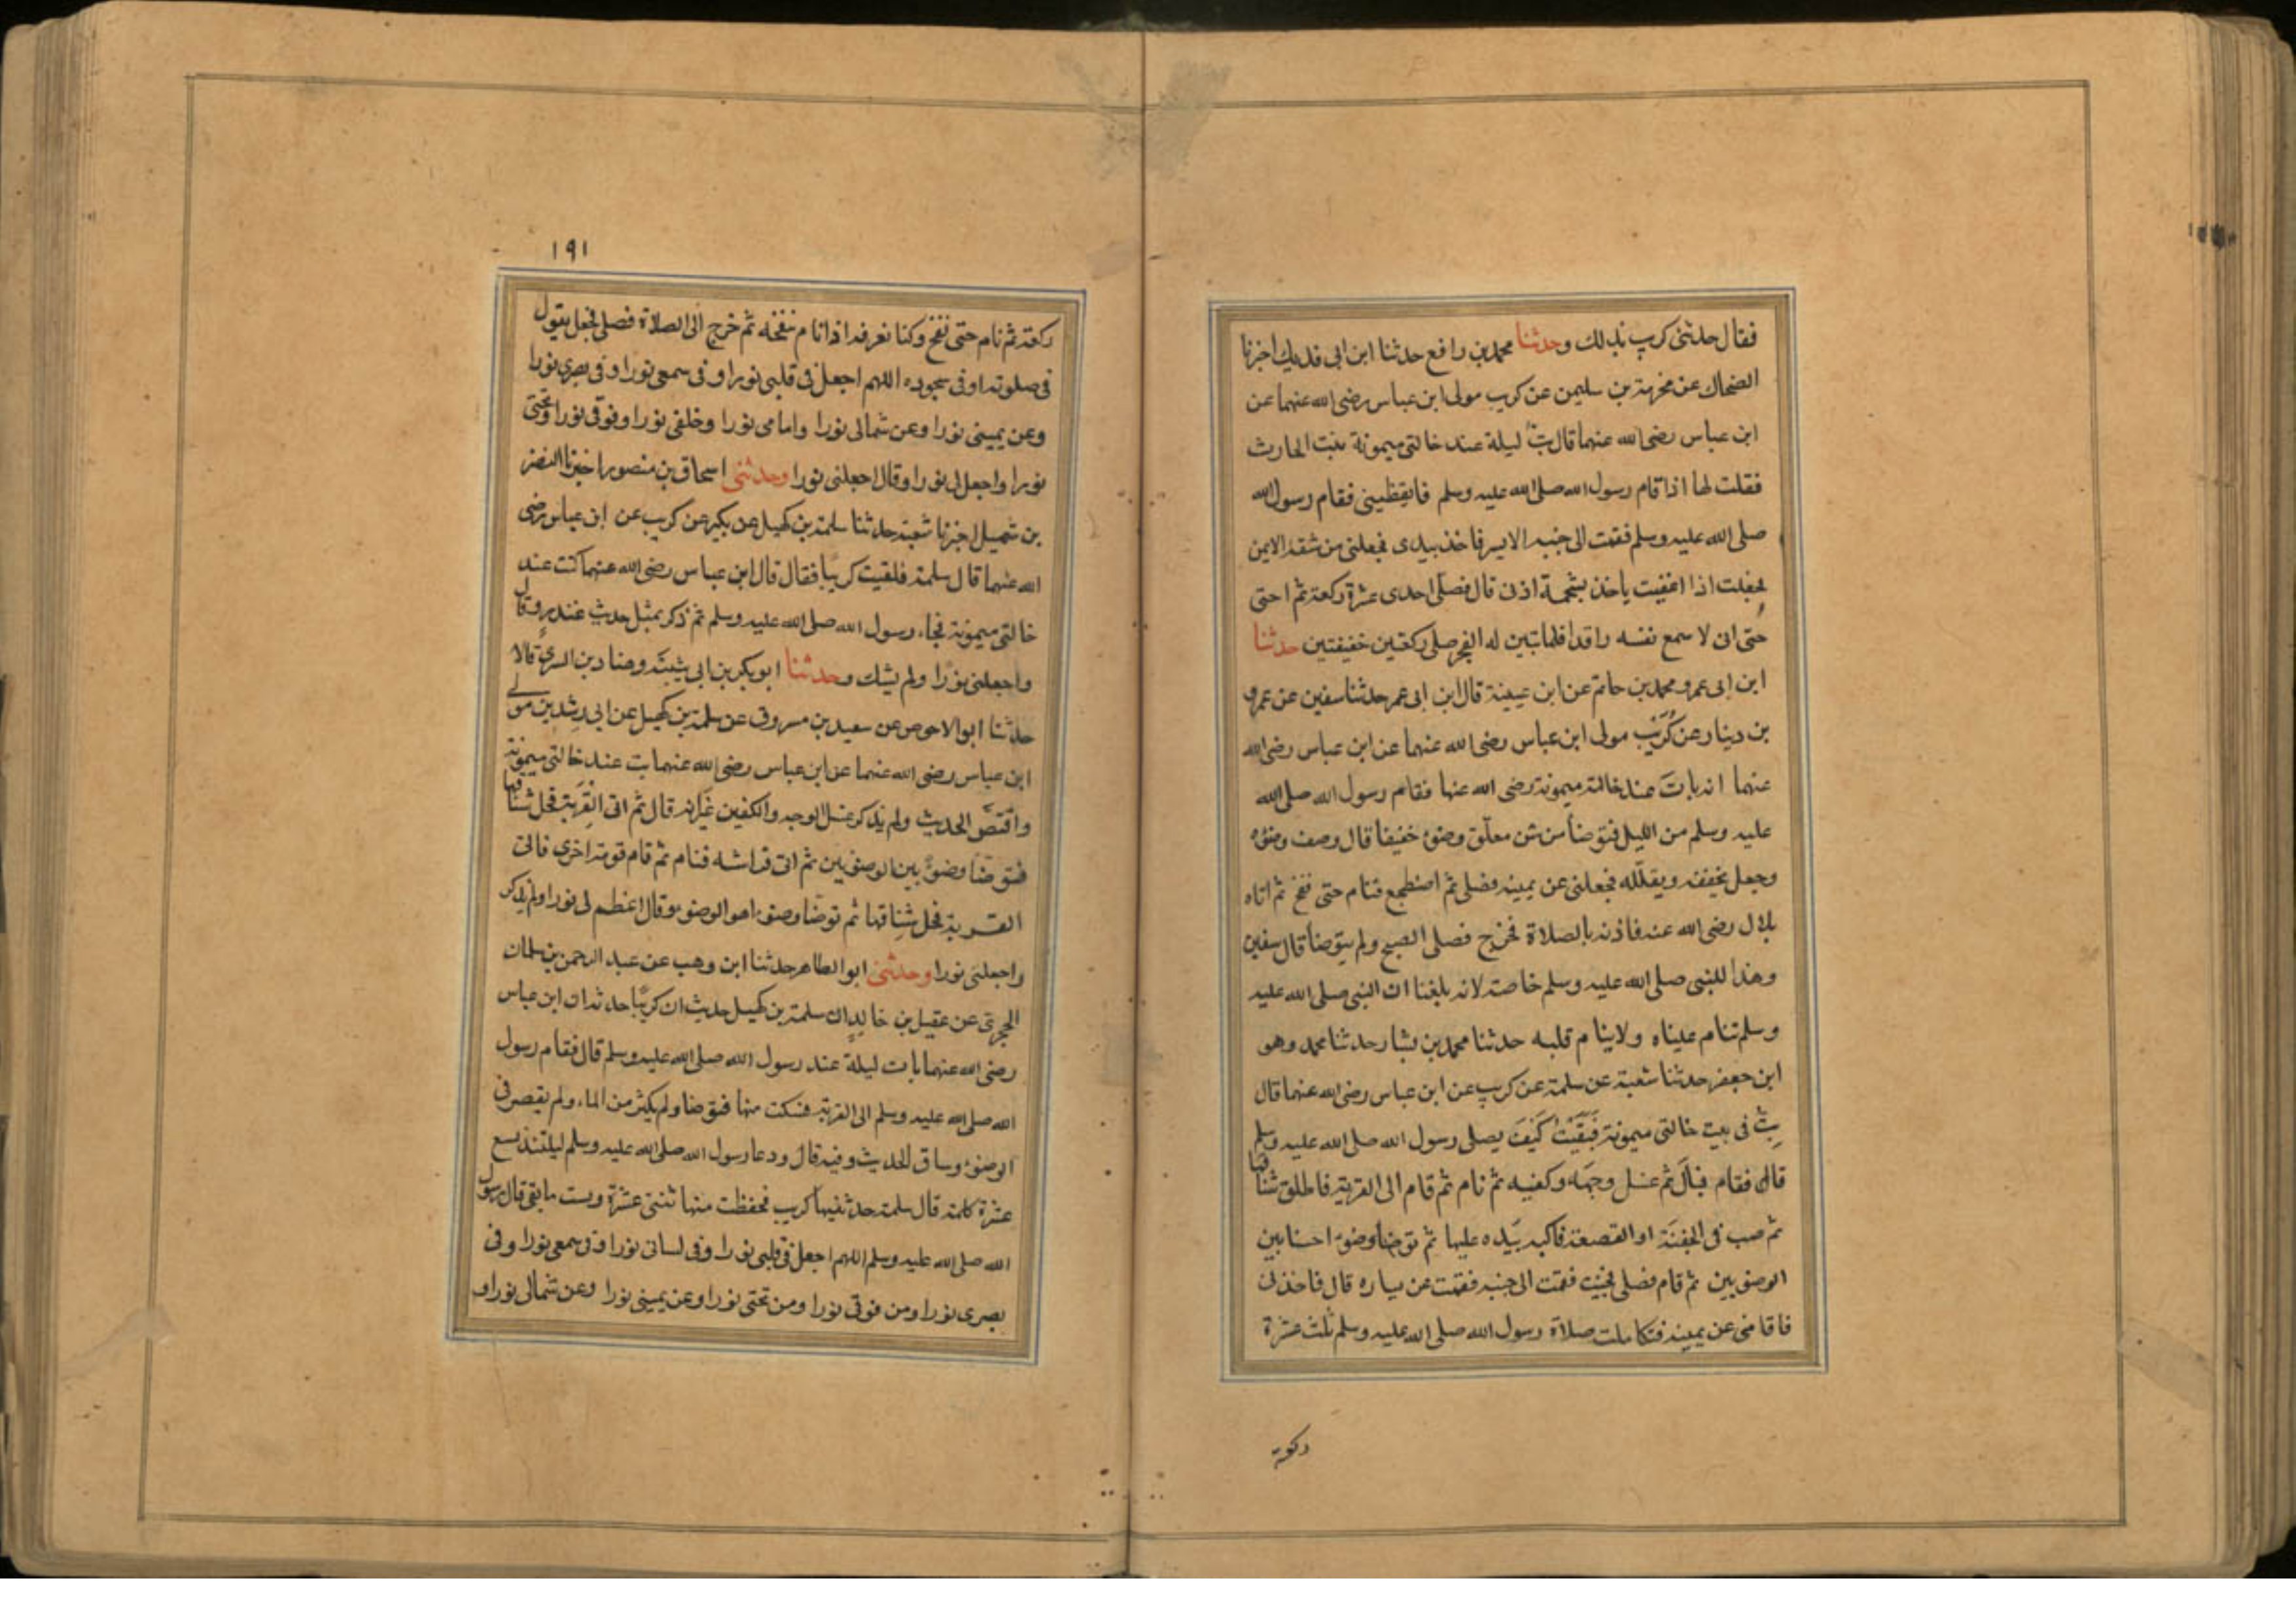 فقال حدثنى كريب بذلك وحدثنا محمد بن رافع حدثنا ابن ابى فديك اخبرنا
الضحاك عن مخرمة بن سليمن عن كريب مولى ابن عباس رضى الله عنهما عن
ابن عباس رضى الله عنهما قال بتُّ ليلة عند خالتى ميمونة بنت الحارث
فقلت لها اذا قام رسول الله صلى الله عليه وسلم فايقظينى فقام رسول الله
صلى الله عليه وسلم فقمت الى جنبه الايسر فاخذ بيدى فجعلنى من شقه الايمن
فجعلت اذا اغفيت ياخذ بشحمة اذنى قال فصلى احدى عشرة ركعة ثم احتى
حتى انى لا سمع نفسه راقدا فلما تبين له الفجر صلى ركعتين خفيفتين حدثنا
ابن ابى عمر ومحمد بن حاتم عن ابن عيينة قال ابن ابى عمر حدثنا سفين عن عمرو
بن دينار عن كُرَيْب مولى ابن عباس رضى الله عنهما عن ابن عباس رضى الله
عنهما انه باتَ عند خالته ميمونة رضى الله عنها فقام رسول الله صلى الله
عليه وسلم من الليل فتوضأ من شن معلّق وضوء خفيفا قال وصف وضوءه
وجعل يخففه ويقلّله فجعلنى عن يمينه فصلى ثم اضطجع فنام حتى نفخ ثم اتاه
بلال رضى الله عنه فاذنه بالصلاة فخرج فصلى الصبح ولم يتوضأ قال سفين
وهذا للنبى صلى الله عليه وسلم خاصة لانه بلغنا ان النبى صلى الله عليه
وسلم تنام عيناه ولا ينام قلبه حدثنا محمد بن بشار حدثنا محمد وهو
ابن جعفر حدثنا شعبة عن سلمة عن كريب عن ابن عباس رضى الله عنهما قال
بِتُّ فى بيت خالتى ميمونة فَبَقَيْتُ كَيْفَ يصلى رسول الله صلى الله عليه وسلم
قال فقام فبالَ ثم غسل وجهَه وكفيه ثم نام ثم قام الى القربة فاطلق شناقها
ثم صب فى الجفنَة او القصعة فاكبه بيَده عليها ثم توضأ وضوء احسنا بين
الوضوءين ثم قام فصلى فجئت فقمت الى جنبه فقمت عن يساره قال فاخذنى
فاقامنى عن يمينه فتكاملت صلاة رسول الله صلى الله عليه وسلم ثلث عشرة
ركعة
١٩١
ركعة ثم نام حتى نفخ وكنا نعرفه اذا نام بنفخه ثم خرج الى الصلاة فصلى فجعل يقول
فى صلوته او فى سجوده اللهم اجعل فى قلبى نورا وفى سمعى نورا وفى بصرى نورا
وعن يمينى نورا وعن شمالى نورا وامامى نورا وخلفى نورا وفوقى نورا وتحتى
نورا واجعل لى نورا وقال اجعلنى نورا وحدثنى اسحاق بن منصور اخبرنا النضر
بن شميل اخبرنا شعبة حدثنا سلمة بن كهيل عن بكير عن كريب عن ابن عباس رضى
الله عنهما قال سلمة فلقيت كريبًا فقال قال ابن عباس رضى الله عنهما كنت عند
خالتى ميمونة فجاء رسول الله صلى الله عليه وسلم ثم ذكر بمثل حديث غندر وقال
واجعلنى نورًا ولم يشك وحدثنا ابو بكر بن ابى شيبَة وهناد بن السرىّ قالا
حدثنا ابو الاحوص عن سعيد بن مسروق عن سلمة بن كهيل عن ابى رِشدين مولى
ابن عباس رضى الله عنهما عن ابن عباس رضى الله عنهما بت عند خالتى ميمونة
واقتصَّ الحديث ولم يذكر غسل الوجه والكفين غيرَ انه قال ثم اتى القِرْبة فحل شناقها
فتوضأ وضوءً بين الوضوءين ثم اتى فراشه فنام ثم قام قومة اخرى فاتى
القربة فحل شِناقها ثم توضّأ وضوء اهو الوضوء وقال اعظم لى نورا ولم يذكر
واجعلنى نورا وحدثنى ابو الطاهر حدثنا ابن وهب عن عبد الرحمن بن سلمان
الحجرىّ عن عقيل بن خالدٍ ان سلمة بن كهيل حديث ان كريبًا حدثه ان ابن عباس
رضى الله عنهما بات ليلة عند رسول الله صلى الله عليه وسلم قال فقام رسول
الله صلى الله عليه وسلم الى القربة فسكت منها فتوضا ولم يكثر من الماء ولم يقصر فى
الوضوء وساق الحديث وفيه قال ودعا رسول الله صلى الله عليه وسلم ليلتئذ تسع
عشرة كلمة قال سلمة حدثنيها كريب فحفظت منها ثنتى عشرة ونست ما بقى قال رسول
الله صلى الله عليه وسلم اللهم اجعل فى قلبى نورا وفى لسانى نورا وفى سمعى نورا وفى
بصرى نورا ومن فوقى نورا ومن تحتى نورا وعن يمينى نورا وعن شمالى نورا و